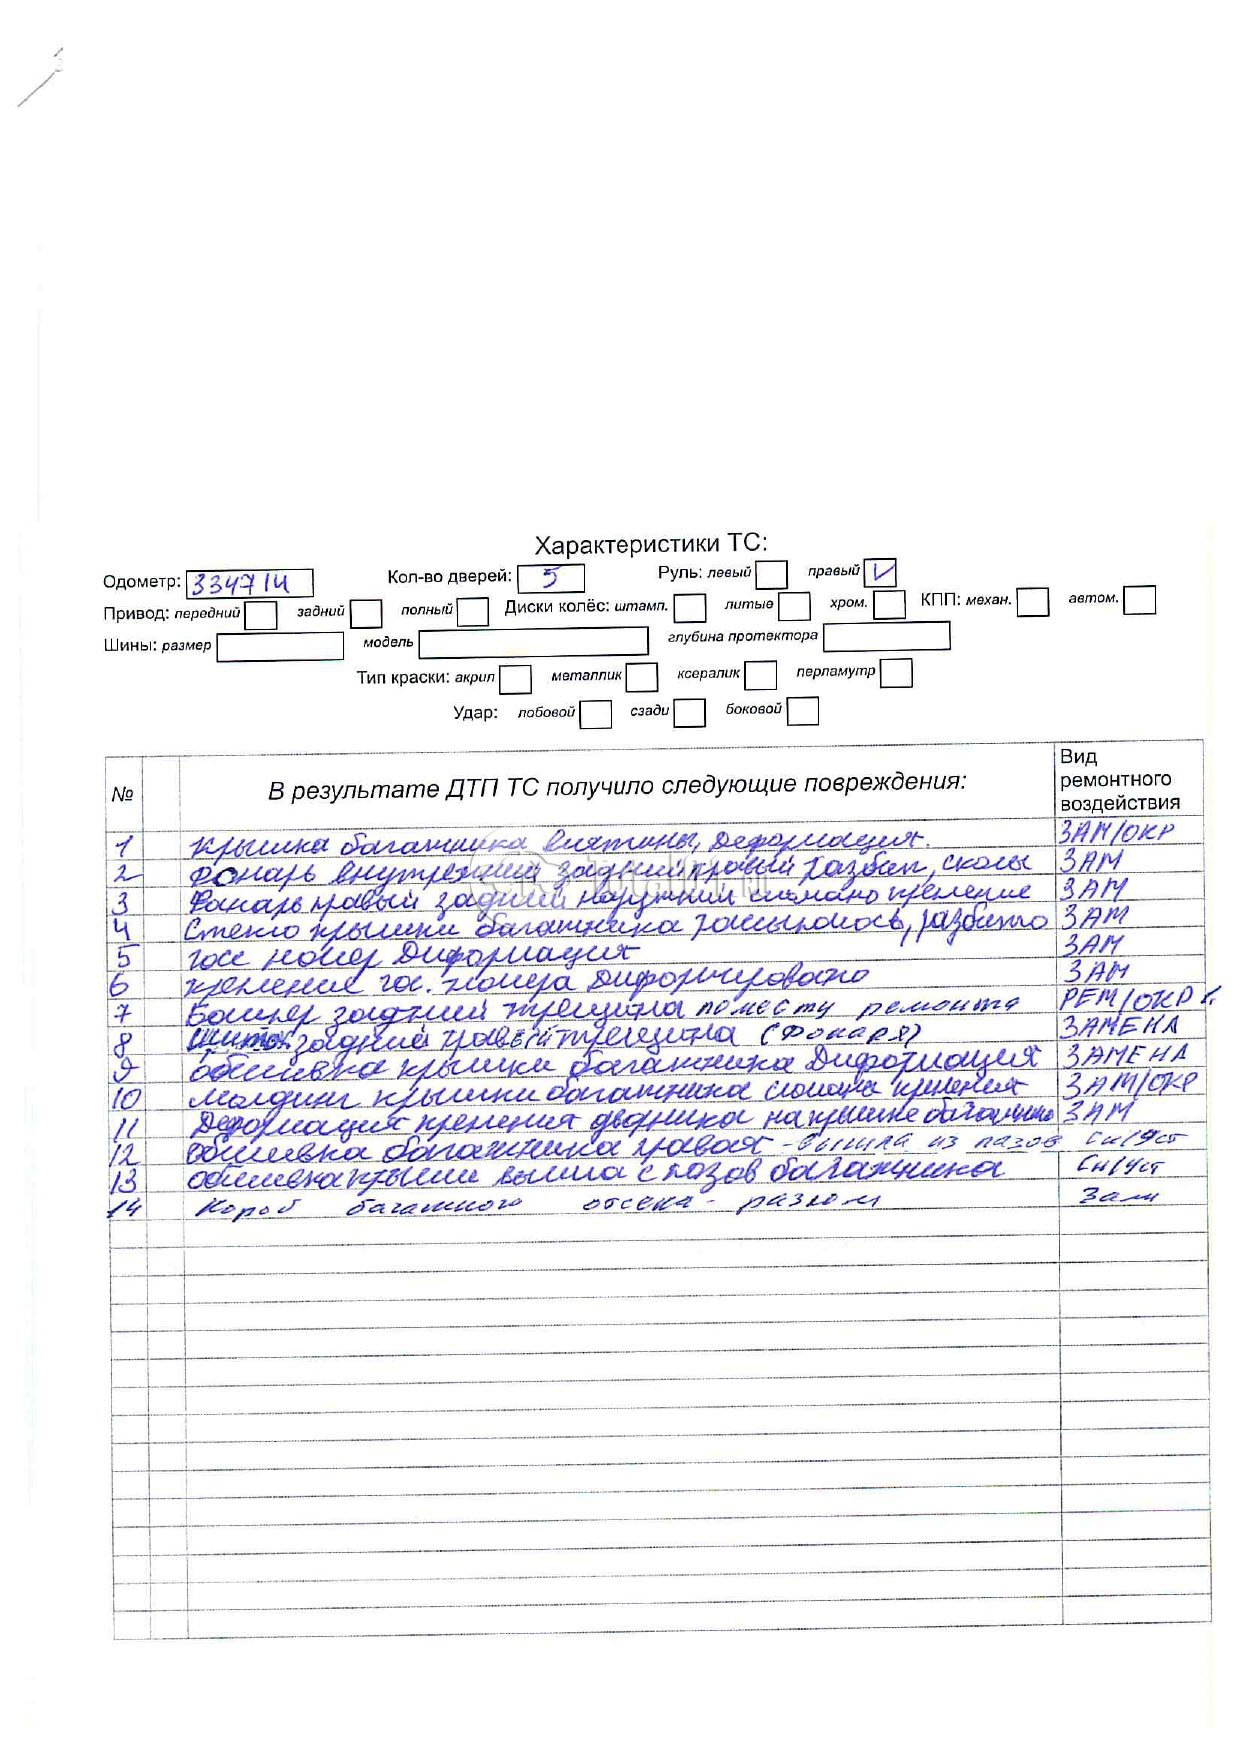 Характеристики ТС:
Одометр: 334714 Кол-во дверей: 5 Руль: левый правый V
Привод: передний задний полный Диски колёс: штамп. литые хром. КПП: механ. автом.
Шины: размер модель глубина протектора
Тип краски: акрил металлик ксералик перламутр
Удар: лобовой сзади боковой
№ В результате ДТП ТС получило следующие повреждения: Вид ремонтного воздействия
1 Крышка багажника вмятины, Деформация. ЗАМ/ОКР
2 Фонарь внутренний задний правый разбит, сколы ЗАМ
3 Фонарь правый задний наружний сломано крепление ЗАМ
4 Стекло крышки багажника рассыпалось, разбито ЗАМ
5 гос номер Диформация ЗАМ
6 крепление гос. номера Диформировано ЗАМ
7 Бампер задний трещина по месту ремонта РЕМ/ОКР
8 задний правый трещина (Фонаря) ЗАМЕНА
9 Обшивка крышки багажника Диформация ЗАМЕНА
10 молдинг крышки багажника сломаны крепления ЗАМ/ОКР
11 Деформация крепления дворника на крышке багажника ЗАМ
12 обшивка багажника правая - вышла из пазов Сн/Уст
13 обшивка крыши вышла с пазов багажника Сн/Уст
14 Короб багажного отсека - разлом Зам